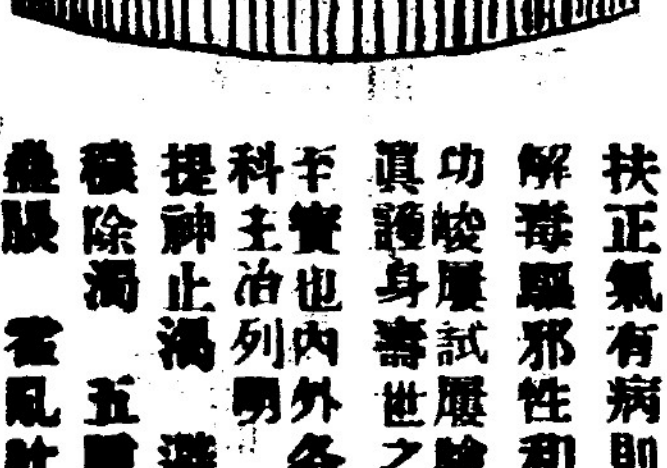 扶正氣有病則
解毒驅邪性和
功峻屢試屢驗
眞護身壽世之
至寶也內外各
科主治列明
提神止渴
穢除濁 五
蠱脹 霍亂吐